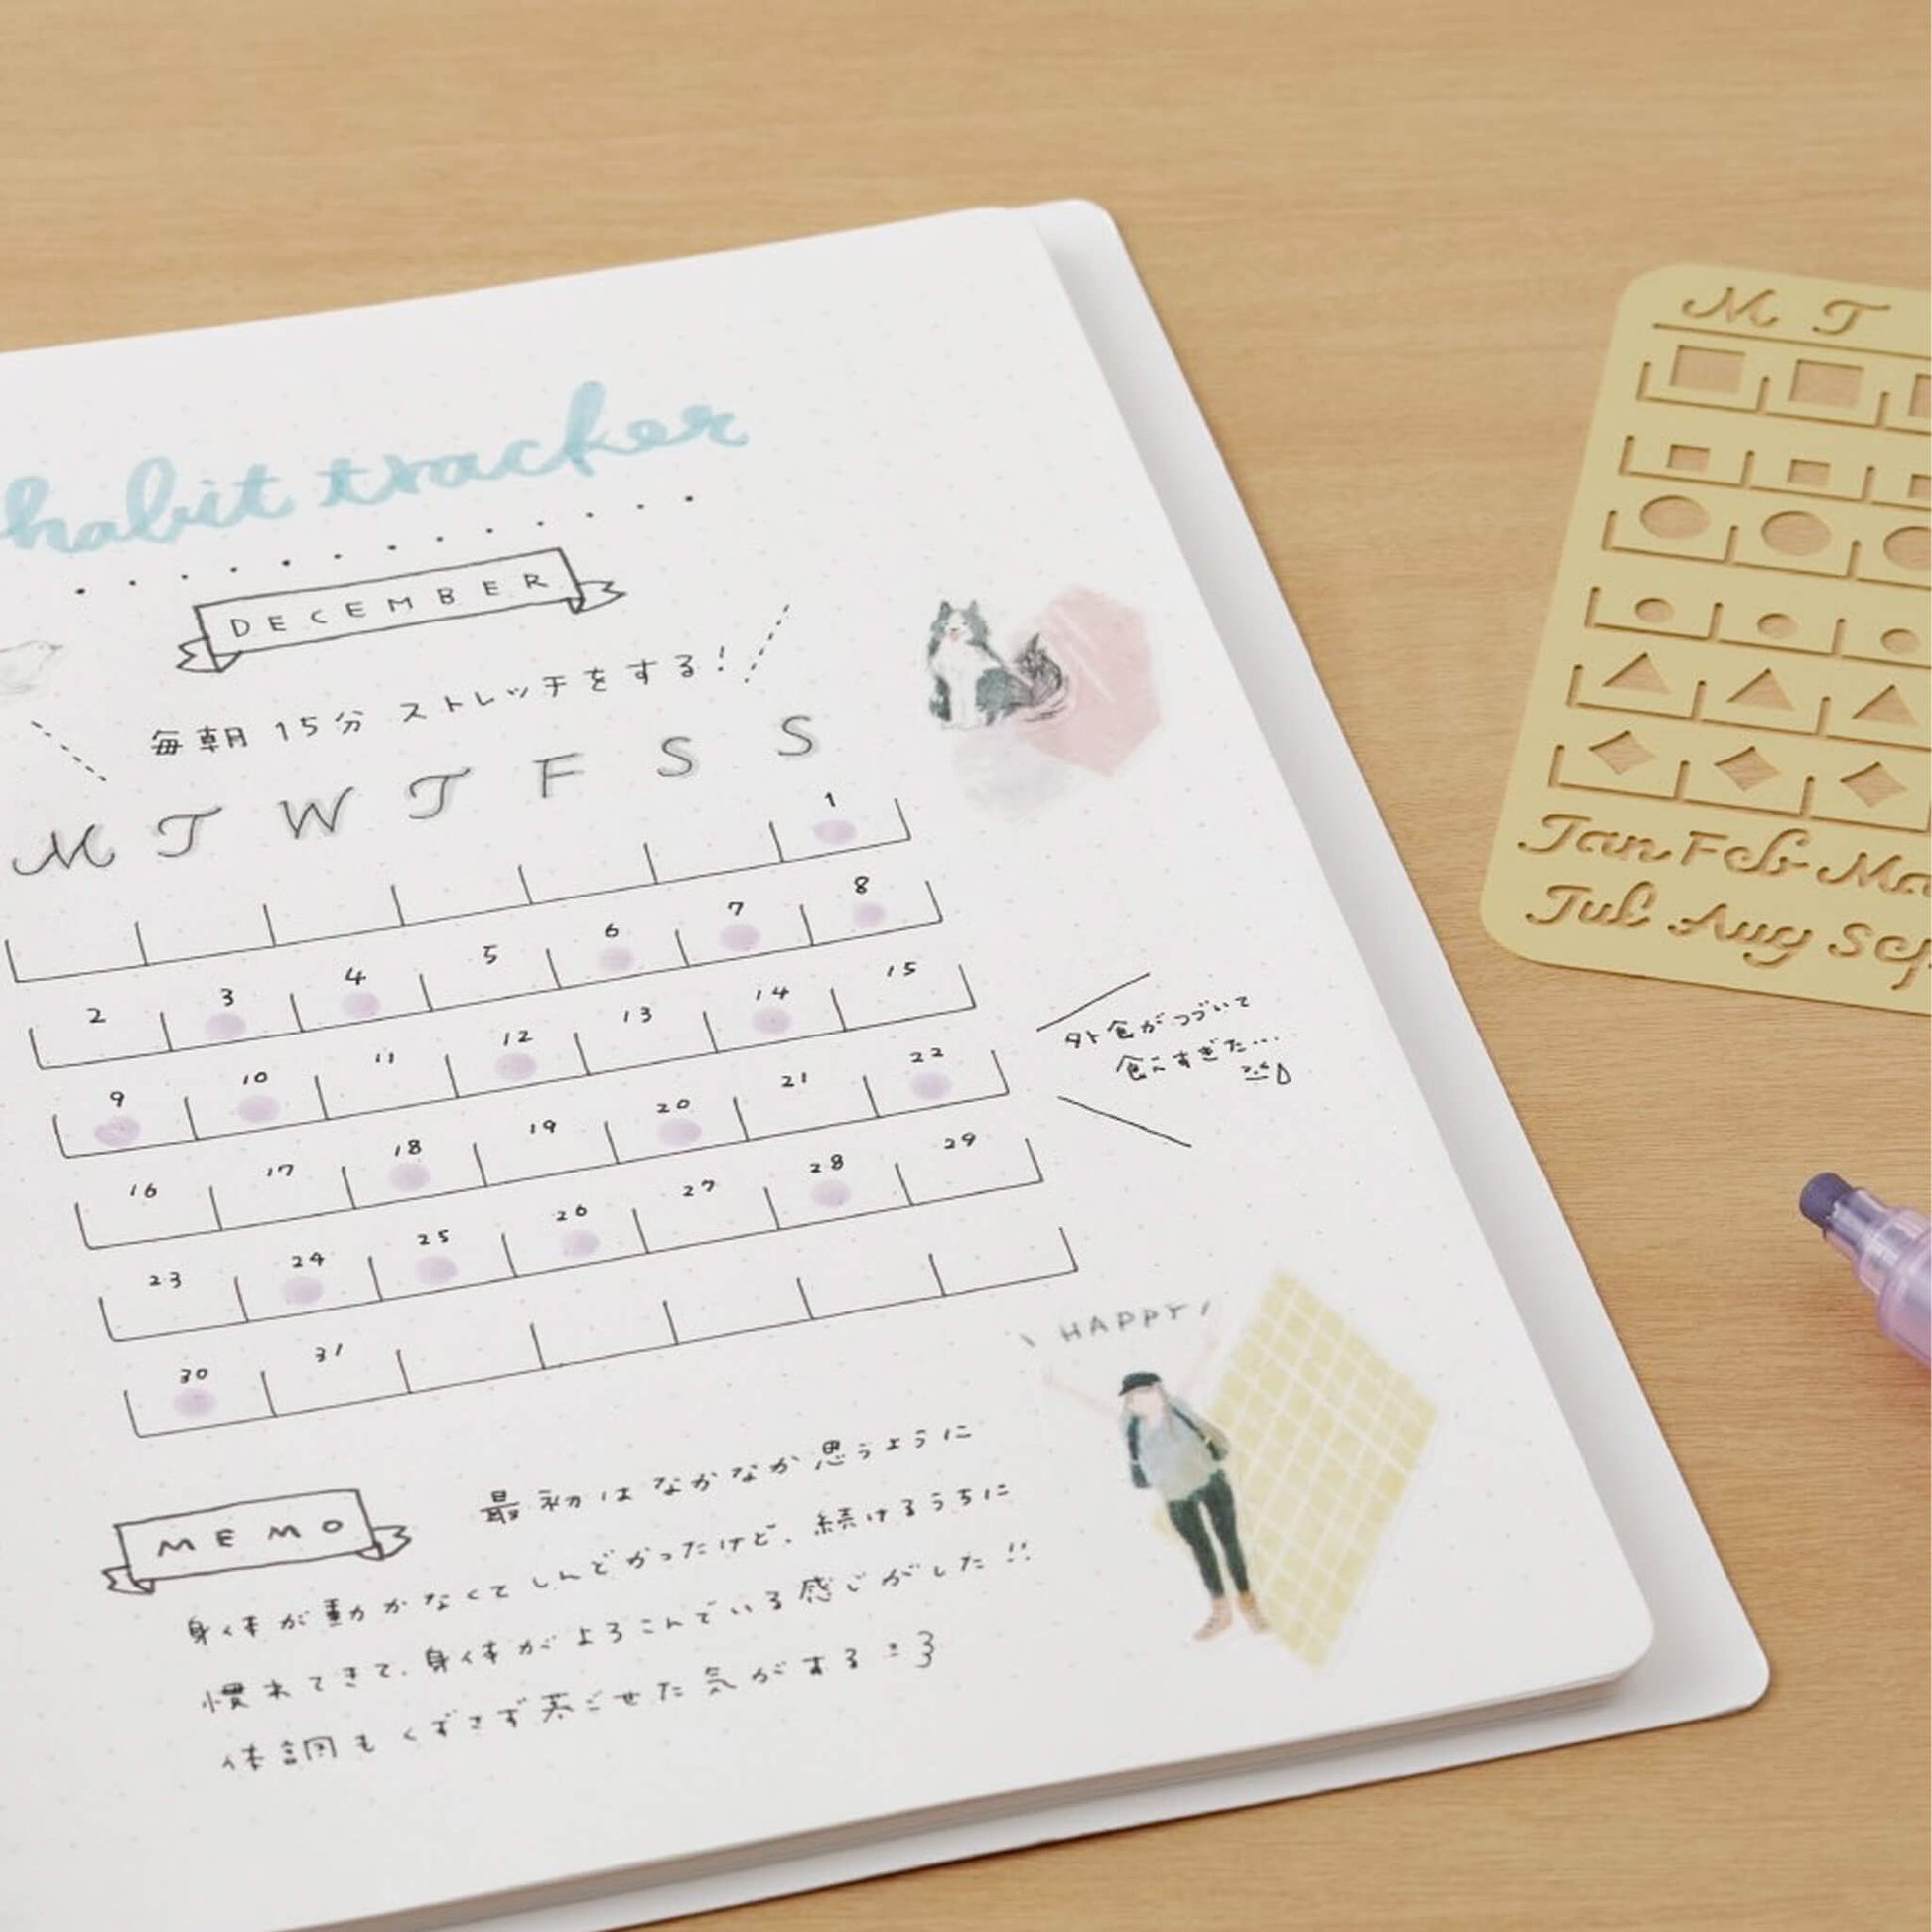 habit tracker
DECEMBER
毎朝15分 ストレッチをする!
M T W T F S S
1
2 3 4 5 6 7 8
9 10 11 12 13 14 15
16 17 18 19 20 21 22
23 24 25 26 27 28 29
30 31
外食がつづいて
食べすぎた…
HAPPY
MEMO
最初はなかなか思うように
身体が動かなくてしんどかったけど、続けるうちに
慣れてきて、身体がよろこんでいる感じがした!!
体調もくずさず過ごせた気がする:3
M T
Jan Feb Ma
Jul Aug Sep